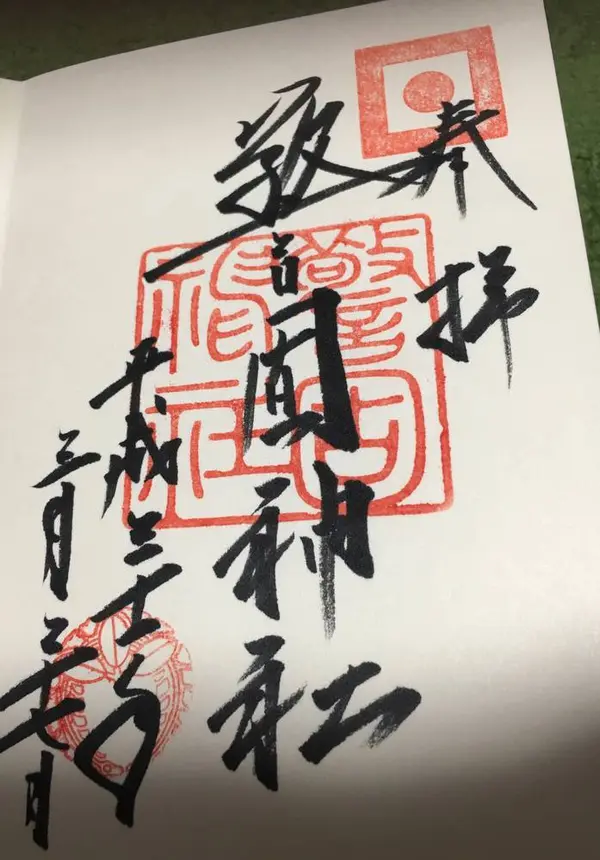 奉拝
警固神社
警固
神社
平成三十年
三月二十七日